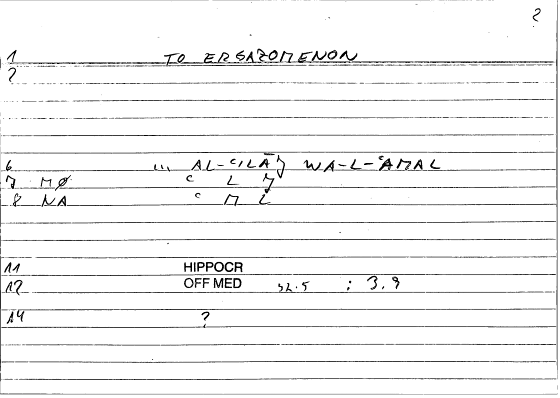 2
1 TO ERGAZOMENON
2
6 ... AL-ʿILĀǦ WA-L-ʿAMAL
7 MØ ʿ L Ǧ
8 NA ʿ M L
11 HIPPOCR
12 OFF MED 32.5 : 3.9
14 ?